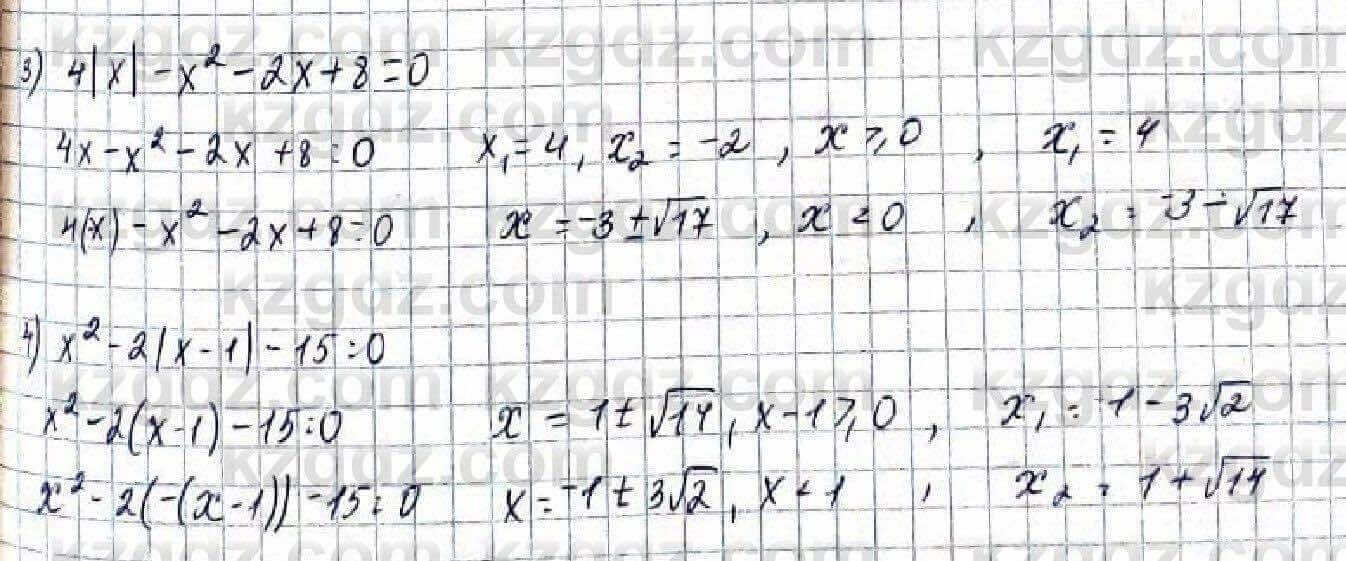 3) 4|x| - x² - 2x + 8 = 0
4x - x² - 2x + 8 = 0 x₁ = 4, x₂ = -2, x ≥ 0, x₁ = 4
4(x) - x² - 2x + 8 = 0 x = -3 ± √17, x < 0, x₂ = -3 - √17
4) x² - 2|x - 1| - 15 = 0
x² - 2(x - 1) - 15 = 0 x = 1 ± √14, x - 1 ≥ 0, x₁ = -1 - 3√2
x² - 2(-(x - 1)) - 15 = 0 x = -1 ± 3√2, x < 1, x₂ = 1 + √14
kzgdz.com